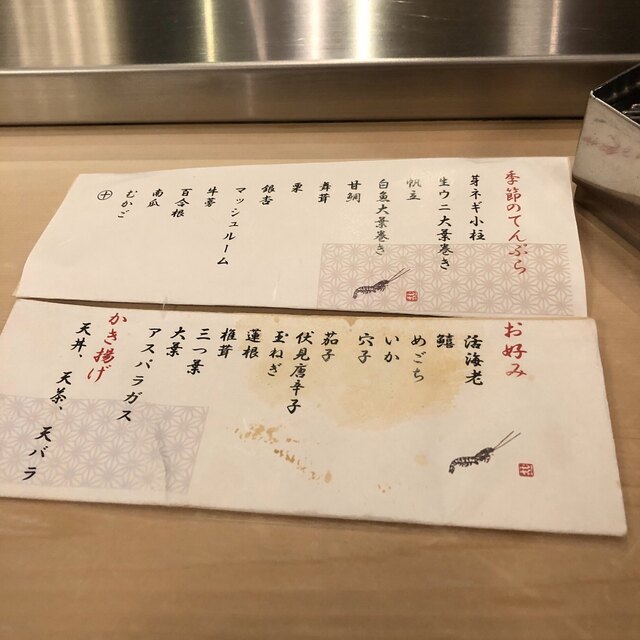 季節のてんぷら
芽ネギ小柱
生ウニ大葉巻き
帆立
白魚大葉巻き
甘鯛
舞茸
栗
銀杏
マッシュルーム
牛蒡
百合根
南瓜
むかご
㊉
お好み
活海老
鱚
めごち
いか
穴子
茄子
伏見唐辛子
玉ねぎ
蓮根
椎茸
三つ葉
大葉
アスパラガス
かき揚げ
天丼、天茶、天バラ